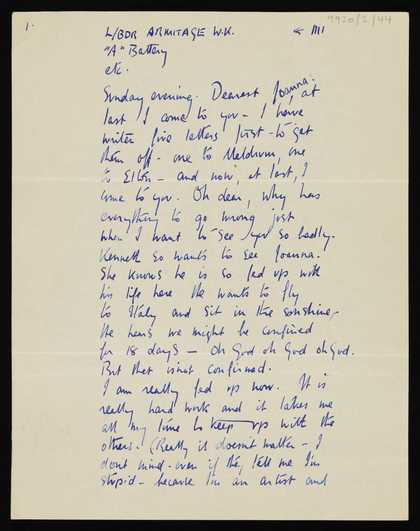 1.
L/BDR ARMITAGE W.K.
7920/2/44
"A" Battery
etc.
Sunday evening. Dearest Joanna: at
last I come to you - I have
writen five letters first - to get
them off - one to Meldrum, one
to Elton - and now, at last, I
come to you. Oh dear, why has
everything to go wrong just
when I want to see you so badly.
Kenneth so wants to see Joanna.
She knows he is so fed up with
his life here He wants to fly
to Italy and sit in the sunshine,-
He hears we might be confined
for 18 days - Oh God oh God oh God.
But that is not confirmed.
I am really fed up now. It is
really hard work and it takes me
all my time to keep up with the
others. (Really it doesn't matter - I
dont mind - even if they tell me I'm
stupid - because I'm an artist and